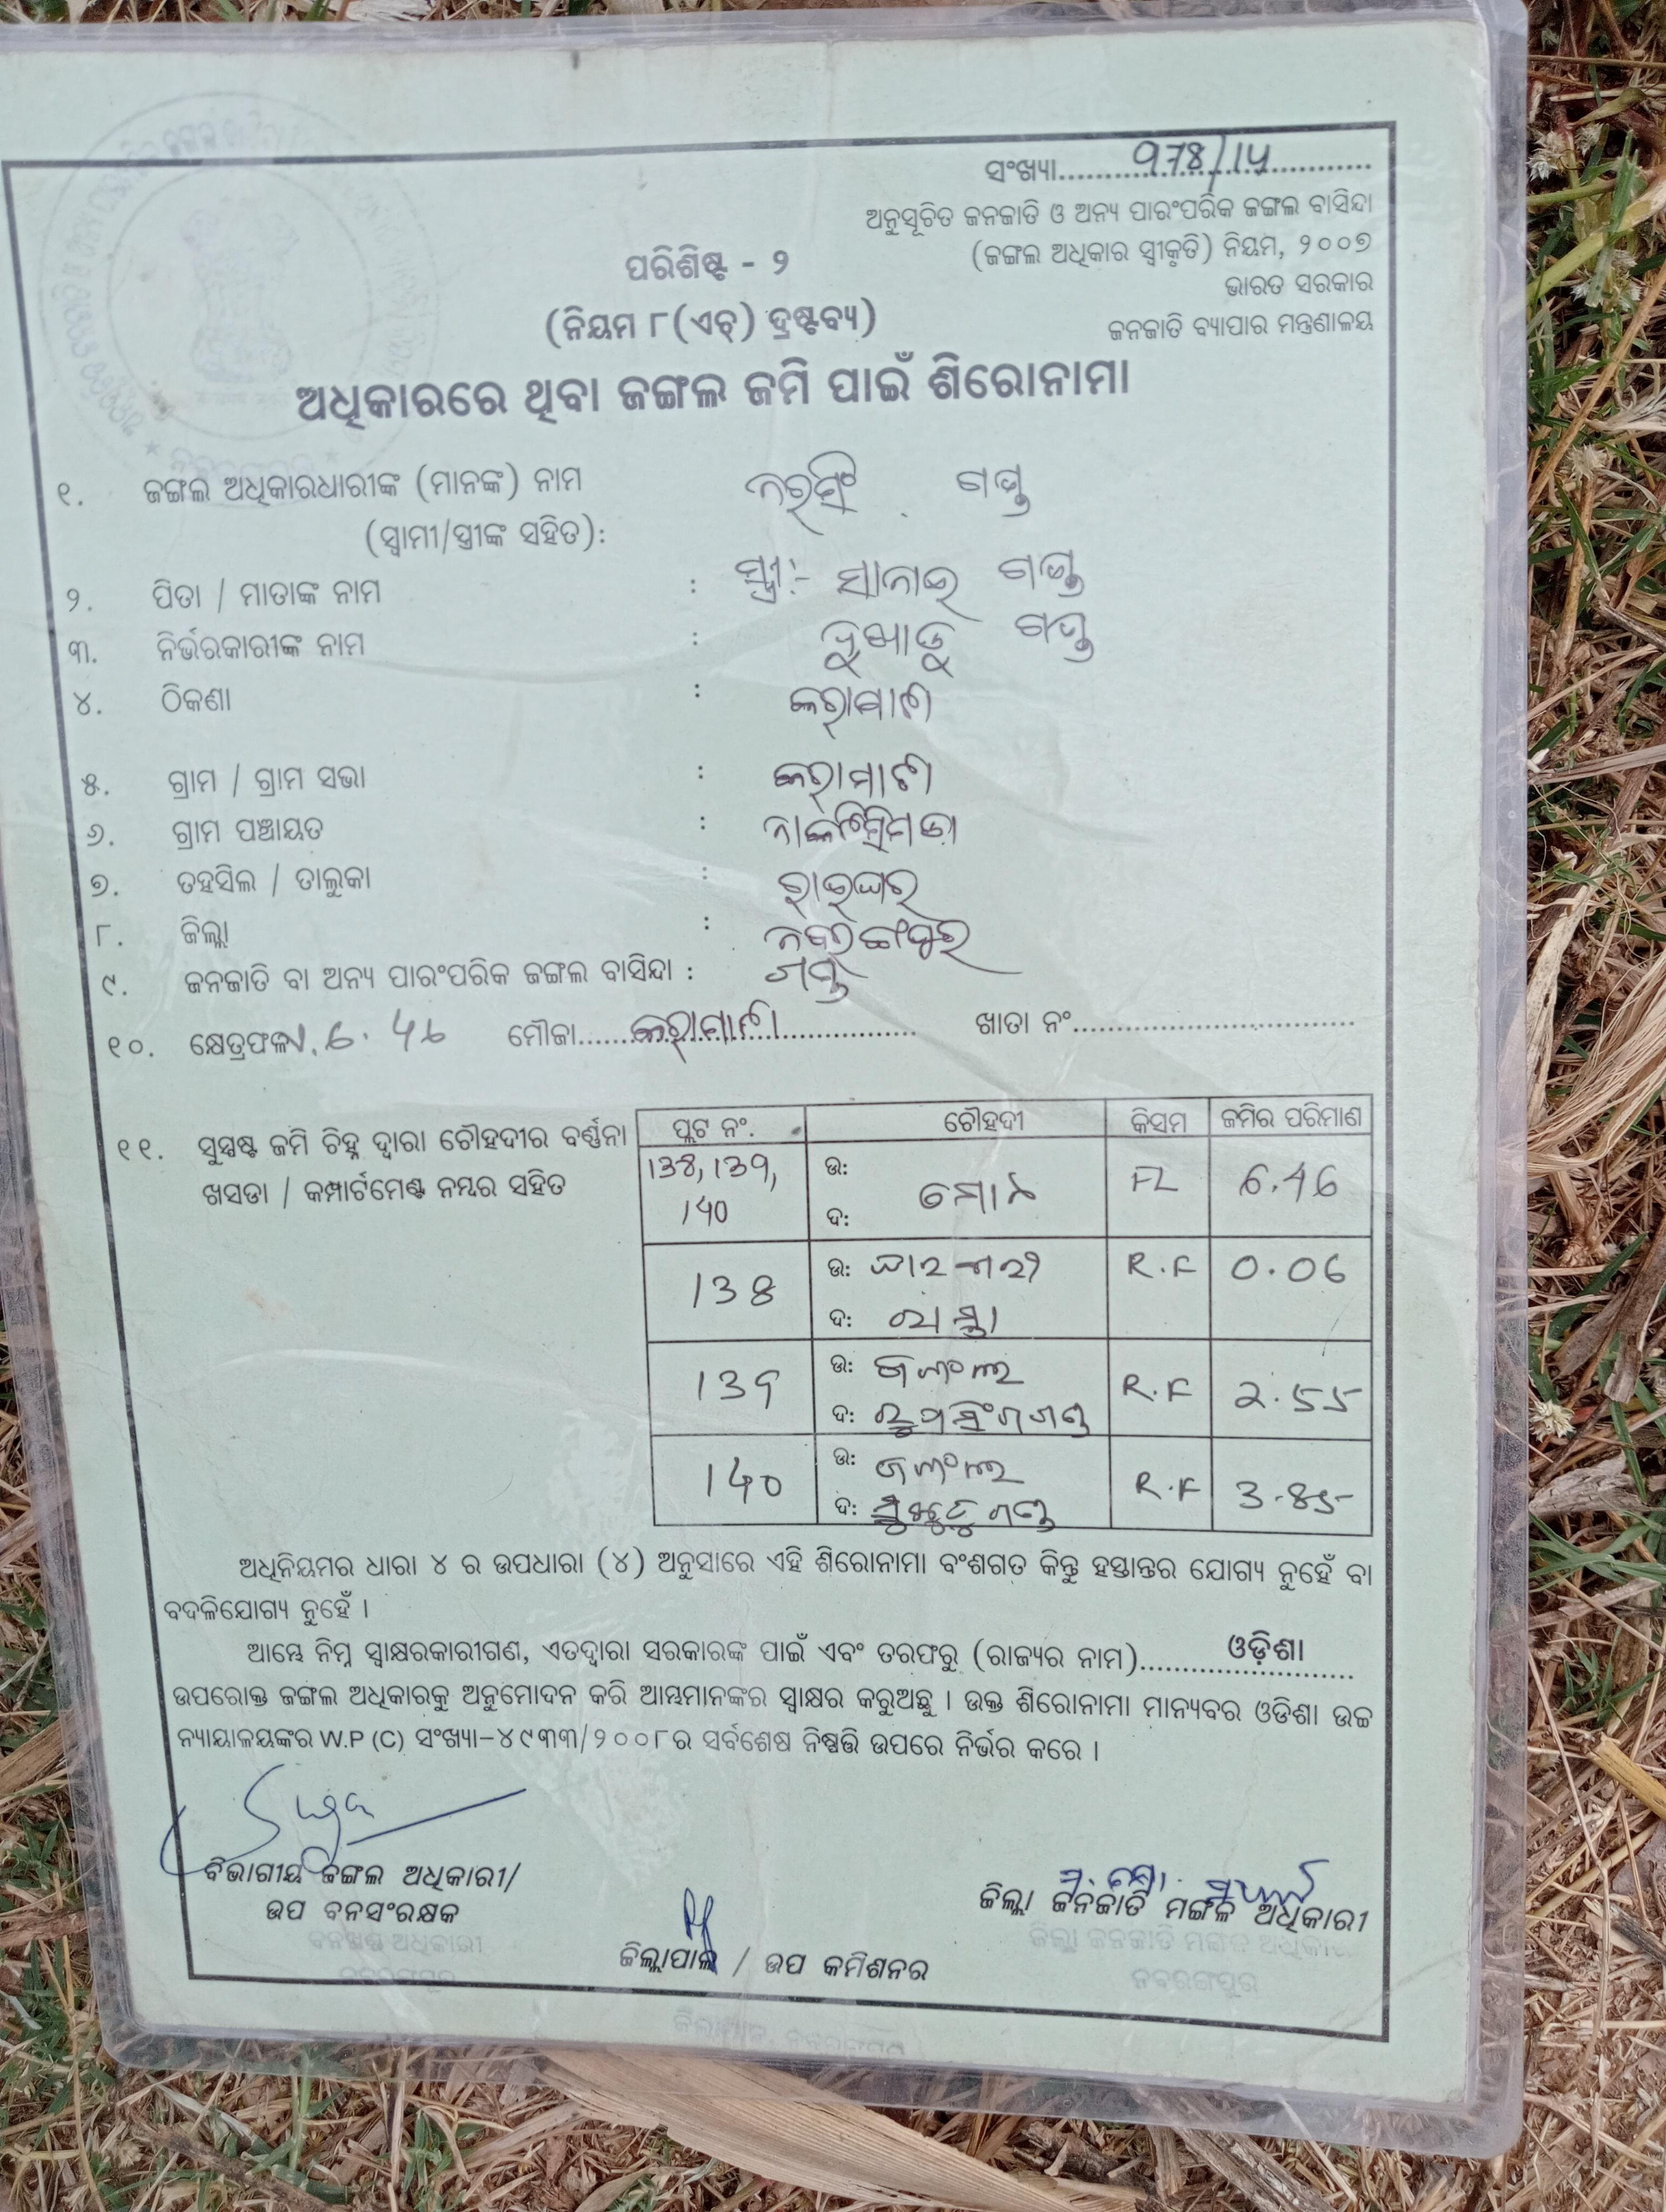 ସଂଖ୍ୟା.......978/14.......
ଅନୁସୂଚିତ ଜନଜାତି ଓ ଅନ୍ୟ ପାରଂପରିକ ଜଙ୍ଗଲ ବାସିନ୍ଦା
(ଜଙ୍ଗଲ ଅଧିକାର ସ୍ୱୀକୃତି) ନିୟମ, ୨୦୦୭
ଭାରତ ସରକାର
ଜନଜାତି ବ୍ୟାପାର ମନ୍ତ୍ରଣାଳୟ
ପରିଶିଷ୍ଟ - ୨
(ନିୟମ ୮(ଏଚ୍) ଦ୍ରଷ୍ଟବ୍ୟ)
ଅଧିକାରରେ ଥିବା ଜଙ୍ଗଲ ଜମି ପାଇଁ ଶିରୋନାମା
୧. ଜଙ୍ଗଲ ଅଧିକାରଧାରୀଙ୍କ (ମାନଙ୍କ) ନାମ ନରସିଂ ଗଣ୍ଡ
(ସ୍ୱାମୀ/ସ୍ତ୍ରୀଙ୍କ ସହିତ):
୨. ପିତା / ମାତାଙ୍କ ନାମ : ସ୍ତ୍ରୀ:- ସାନାଇ ଗଣ୍ଡ
୩. ନିର୍ଭରକାରୀଙ୍କ ନାମ : ଗଣ୍ଡ
୪. ଠିକଣା : କରାମାଟୀ
୫. ଗ୍ରାମ / ଗ୍ରାମ ସଭା : କରାମାଟୀ
୬. ଗ୍ରାମ ପଞ୍ଚାୟତ :
୭. ତହସିଲ / ତାଲୁକା : ରାଇଘର
୮. ଜିଲ୍ଲା : ନବରଙ୍ଗପୁର
୯. ଜନଜାତି ବା ଅନ୍ୟ ପାରଂପରିକ ଜଙ୍ଗଲ ବାସିନ୍ଦା : ଗଣ୍ଡ
୧୦. କ୍ଷେତ୍ରଫଳ 6.46 ମୌଜା......କରାମାଟୀ............ ଖାତା ନଂ..............................
୧୧. ସୁସ୍ପଷ୍ଟ ଜମି ଚିହ୍ନ ଦ୍ୱାରା ଚୌହଦୀର ବର୍ଣ୍ଣନା
ଖସଡା / କମ୍ପାର୍ଟମେଣ୍ଟ ନମ୍ବର ସହିତ
ପ୍ଲଟ ନଂ. ଚୌହଦୀ କିସମ ଜମିର ପରିମାଣ
138, 139, 140 ଉ: ଦ: ମୋଟ FL 6.46
138 ଉ: ଦ: ରାସ୍ତା R.F 0.06
139 ଉ: ଜଙ୍ଗଲ ଦ: ରୁପସିଂ ଗଣ୍ଡ R.F 2.55
140 ଉ: ଜଙ୍ଗଲ ଦ: ଗଣ୍ଡ R.F 3.85
ଅଧିନିୟମର ଧାରା ୪ ର ଉପଧାରା (୪) ଅନୁସାରେ ଏହି ଶିରୋନାମା ବଂଶଗତ କିନ୍ତୁ ହସ୍ତାନ୍ତର ଯୋଗ୍ୟ ନୁହେଁ ବା
ବଦଳିଯୋଗ୍ୟ ନୁହେଁ ।
ଆମ୍ଭେ ନିମ୍ନ ସ୍ୱାକ୍ଷରକାରୀଗଣ, ଏତଦ୍ଦ୍ୱାରା ସରକାରଙ୍କ ପାଇଁ ଏବଂ ତରଫରୁ (ରାଜ୍ୟର ନାମ).......ଓଡ଼ିଶା.......
ଉପରୋକ୍ତ ଜଙ୍ଗଲ ଅଧିକାରକୁ ଅନୁମୋଦନ କରି ଆମ୍ଭମାନଙ୍କର ସ୍ୱାକ୍ଷର କରୁଅଛୁ । ଉକ୍ତ ଶିରୋନାମା ମାନ୍ୟବର ଓଡିଶା ଉଚ୍ଚ
ନ୍ୟାୟାଳୟଙ୍କର W.P (C) ସଂଖ୍ୟା-୪୯୩୩/୨୦୦୮ର ସର୍ବଶେଷ ନିଷ୍ପତ୍ତି ଉପରେ ନିର୍ଭର କରେ ।
ବିଭାଗୀୟ ଜଙ୍ଗଲ ଅଧିକାରୀ/
ଉପ ବନସଂରକ୍ଷକ
ବନଖଣ୍ଡ ଅଧିକାରୀ
ନବରଙ୍ଗପୁର
ଜିଲ୍ଲାପାଳ / ଉପ କମିଶନର
ଜିଲ୍ଲା ଜନଜାତି ମଙ୍ଗଳ ଅଧିକାରୀ
ଜିଲ୍ଲା ଜନଜାତି ମଙ୍ଗଳ ଅଧିକାରୀ
ନବରଙ୍ଗପୁର
ଜିଲ୍ଲାପାଳ, ନବରଙ୍ଗପୁର